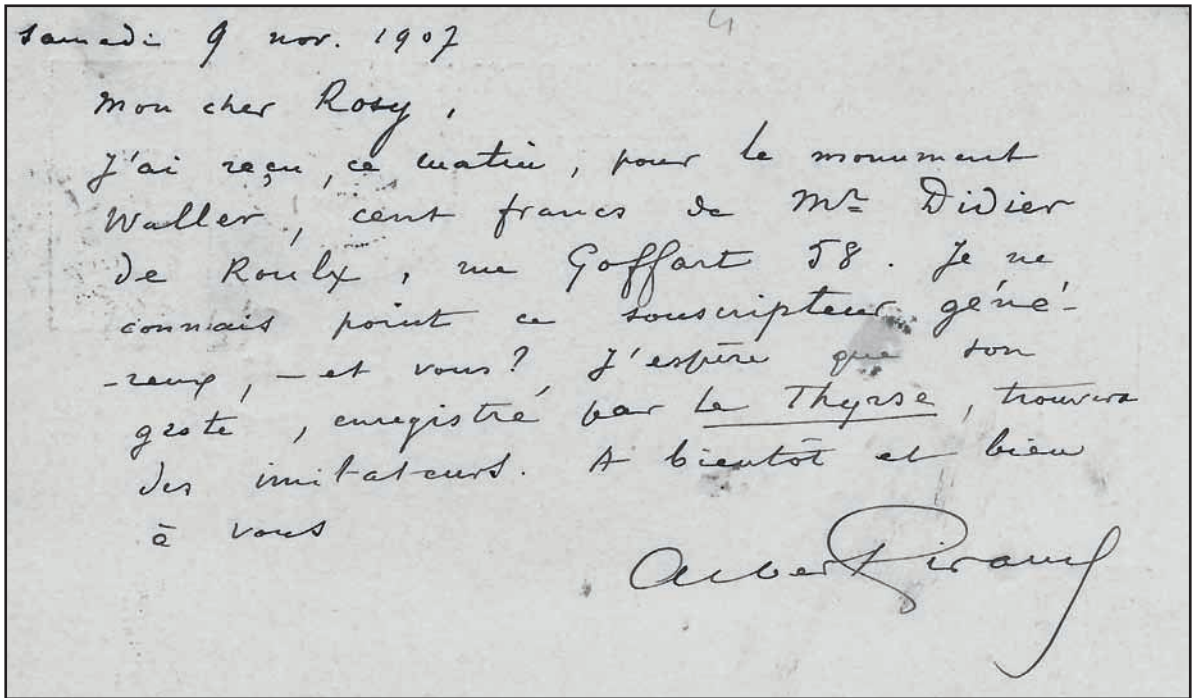 4
samedi 9 nov. 1907
Mon cher Rosy,
J'ai reçu, ce matin, pour le monument
Waller, cent francs de Mr Didier
de Roulx, rue Goffart 58. Je ne
connais point ce souscripteur géné-
-reux, — et vous? J'espère que son
geste, enregistré par Le Thyrse, trouvera
des imitateurs. A bientôt et bien
à vous
Albert Giraud